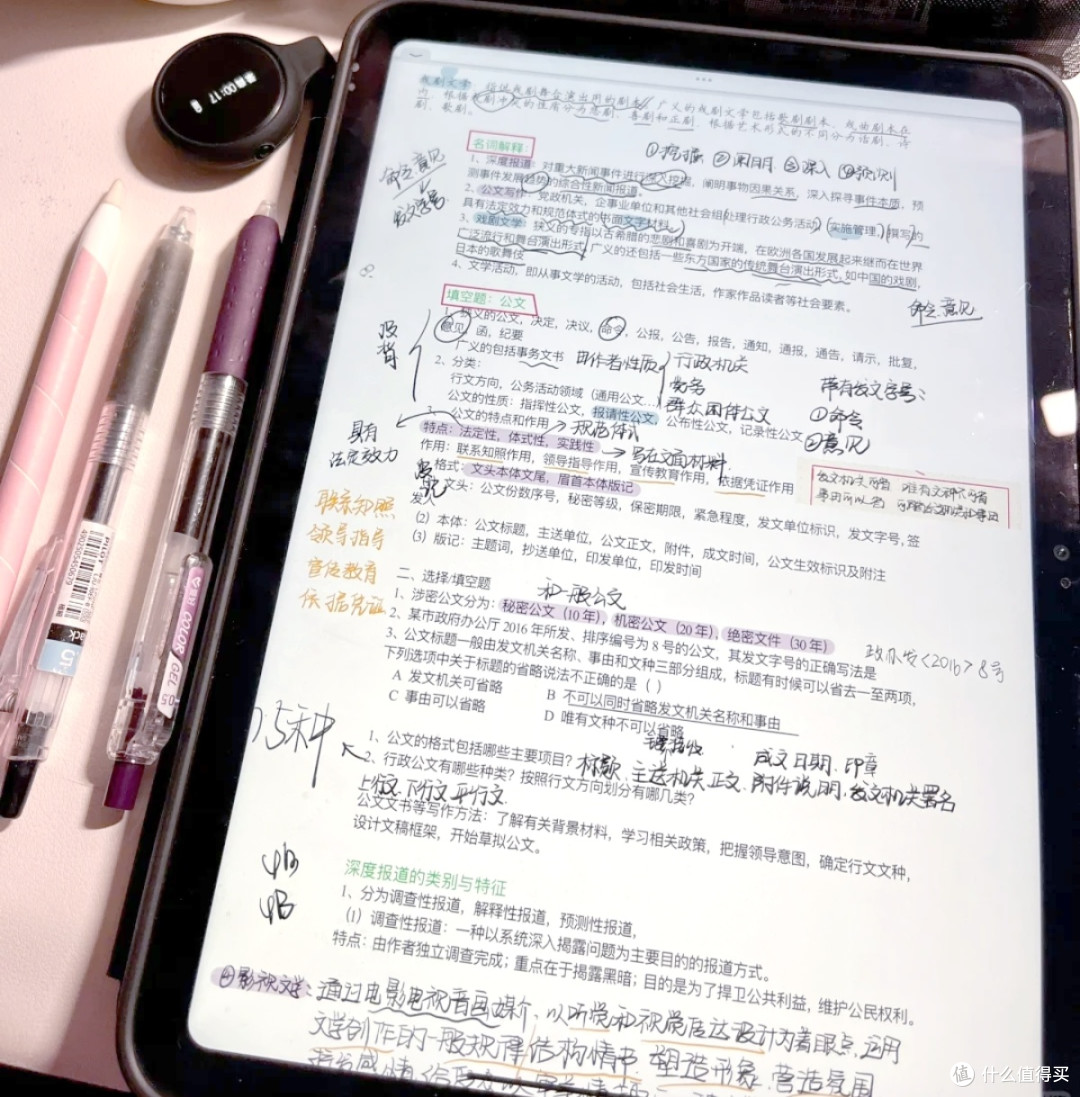 00:17
戏剧文学 指供戏剧舞台演出用的剧本 广义的戏剧文学包括歌剧剧本、戏曲剧本在
内 根据戏剧冲突的性质分为悲剧、喜剧和正剧 根据艺术形式的不同分为话剧、诗
剧、歌剧。
名词解释:
①挖掘 ②阐明 ③深入 ④预测
1、深度报道:对重大新闻事件进行深入挖掘,阐明事物因果关系,深入探寻事件本质,预
测事件发展趋势的综合性新闻报道。
命令意见
发文字号
2、公文写作:党政机关、企事业单位和其他社会组织处理行政公务活动(实施管理)撰写的
具有法定效力和规范体式的书面文字材料。
3、戏剧文学:狭义的专指以古希腊的悲剧和喜剧为开端,在欧洲各国发展起来继而在世界
广泛流行和舞台演出形式,广义的还包括一些东方国家的传统舞台演出形式,如中国的戏剧,
日本的歌舞伎
4、文学活动,即从事文学的活动,包括社会生活,作家作品读者等社会要素。
命令、意见
填空题:公文
1、狭义的公文,决定,决议,命令,公报,公告,报告,通知,通报,通告,请示,批复,
意见,函,纪要
广义的包括事务文书
由作者性质
行政机关
党务
群众团体公文
带有发文字号:
①命令
②意见
2、分类:
行文方向,公务活动领域(通用公文...)
公文的性质:指挥性公文,报请性公文,公布性公文,记录性公文
3、公文的特点和作用
规范体式
特点:法定性,体式性,实践性
书面文字材料
具有
法定效力
作用:联系知照作用,领导指导作用,宣传教育作用,依据凭证作用
格式:文头本体文尾,眉首本体版记
文头:公文份数序号,秘密等级,保密期限,紧急程度,发文单位标识,发文字号,签
发人
(2)本体:公文标题,主送单位,公文正文,附件,成文时间,公文生效标识及附注
(3)版记:主题词,抄送单位,印发单位,印发时间
联系知照
领导指导
宣传教育
依据凭证
二、选择/填空题
和一般公文
1、涉密公文分为:秘密公文(10年),机密公文(20年),绝密文件(30年)
2、某市政府办公厅2016年所发、排序编号为8号的公文,其发文字号的正确写法是
政办发<2016>8号
3、公文标题一般由发文机关名称、事由和文种三部分组成,标题有时候可以省去一至两项,
下列选项中关于标题的省略说法不正确的是( )
A 发文机关可省略
B 不可以同时省略发文机关名称和事由
C 事由可以省略
D 唯有文种不可以省略
15种
1、公文的格式包括哪些主要项目?
标题、主送机关、正文、附件说明、发文机关署名
成文日期、印章
2、行政公文有哪些种类?按照行文方向划分有哪几类?
上行文、下行文、平行文
公文文书等写作方法:了解有关背景材料,学习相关政策,把握领导意图,确定行文文种,
设计文稿框架,开始草拟公文。
深度报道的类别与特征
1、分为调查性报道,解释性报道,预测性报道,
(1)调查性报道:一种以系统深入揭露问题为主要目的的报道方式。
特点:由作者独立调查完成;重点在于揭露黑暗;目的是为了捍卫公共利益,维护公民权利。
④影视文学:通过电影电视音画媒介、以听觉和视觉表达设计为着眼点,运用
文学创作的一般规律结构情节 塑造形象、营造氛围
PILOT
COLOR GEL
0.5
值 什么值得买